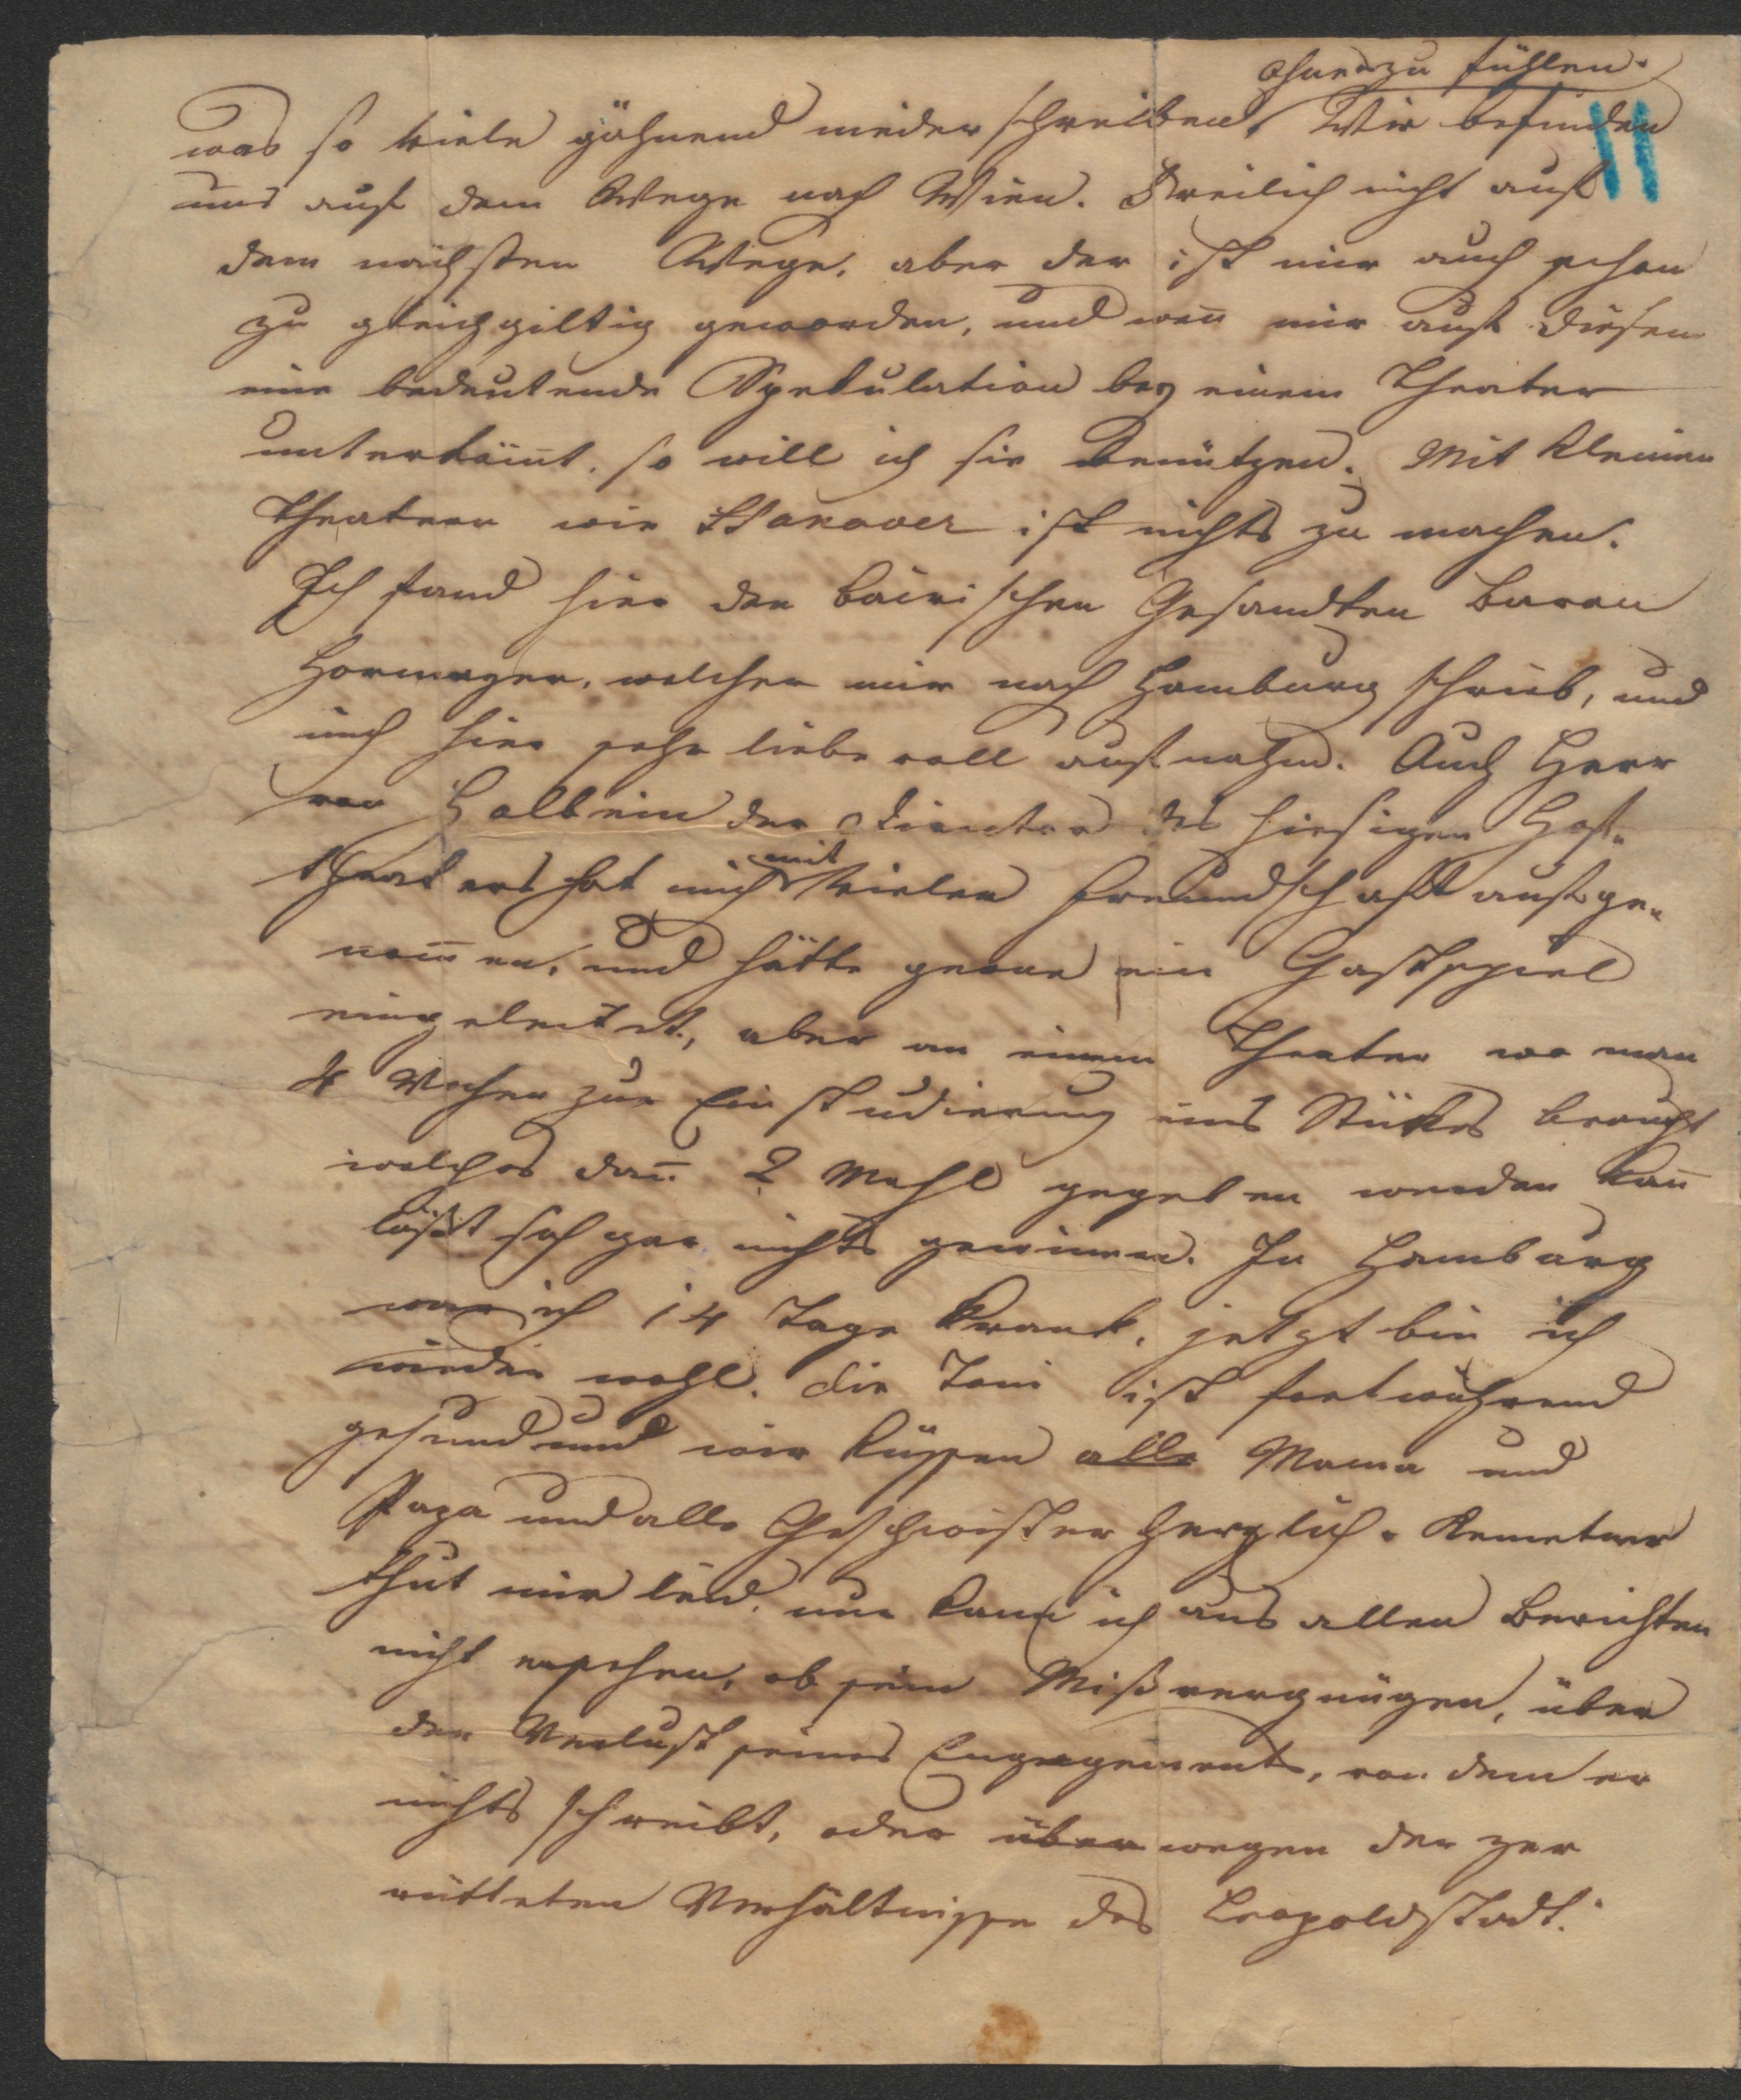 ohne zu fühlen.
was so viele gähnend niederschreiben. Wir befinden
uns auf dem Wege nach Wien. Freilich nicht auf
dem nächsten Wege, aber der ist mir auch schon
zu gleichgiltig geworden, und weñ mir auf diesem
eine bedeutende Spekulation bey einem Theater
unterköm̄t, so will ich sie benützen. Mit kleinen
Theatern wie Hanover ist nichts zu machen.
Ich fand hier den bairischen Gesandten Baron
Hormayer, welcher mir nach Hamburg schrieb, und
mich hier sehr liebevoll aufnahm. Auch Herr
von Holbein der Direktor des hiesigen Hof-
theaters hat mich mit vieler Freundschaft aufge-
nom̄en, und hätte gerne ein Gastspiel
eingeleitet, aber an einem Theater wo man
4 Wochen zur Einstudierung eins Stükes braucht
welches dañ 2 Mahl gegeben werden kañ
läßt sich gar nichts gewinnen. In Hamburg
war ich 14 Tage krank, jetzt bin ich
wieder wohl. Die Toni ist fortwährend
gesund und wir küssen alle Mama und
Papa und alle Geschwister herzlich. Kemetner
thut mir leid, nur kann ich aus allen Berichten
nicht ersehen, ob sein Mißvergnügen, über
den Verlust seines Engagements, von dem er
nichts schreibt, oder über wegen der zer
rütteten Verhältnisse des Leopoldstadt:
11